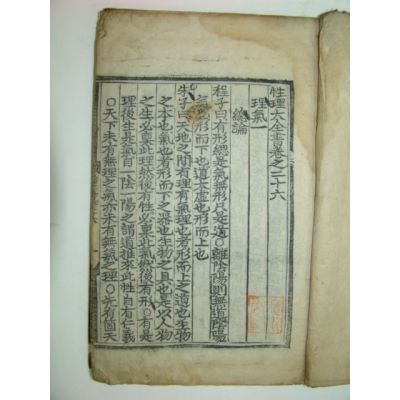 性理大全書卷之二十六
理氣一
總論
程子曰有形總是氣無形只是道○離陰陽則無道陰陽
氣也形而下也道太虛也形而上也
朱子曰天地之間有理有氣理也者形而上之道也生物
之本也氣也者形而下之器也生物之具也是以人物
之生必稟此理然後有性必稟此氣然後有形○有是
理後生是氣自一陰一陽之謂道推來此性自有仁義
○天下未有無理之氣亦未有無氣之理○先有箇天